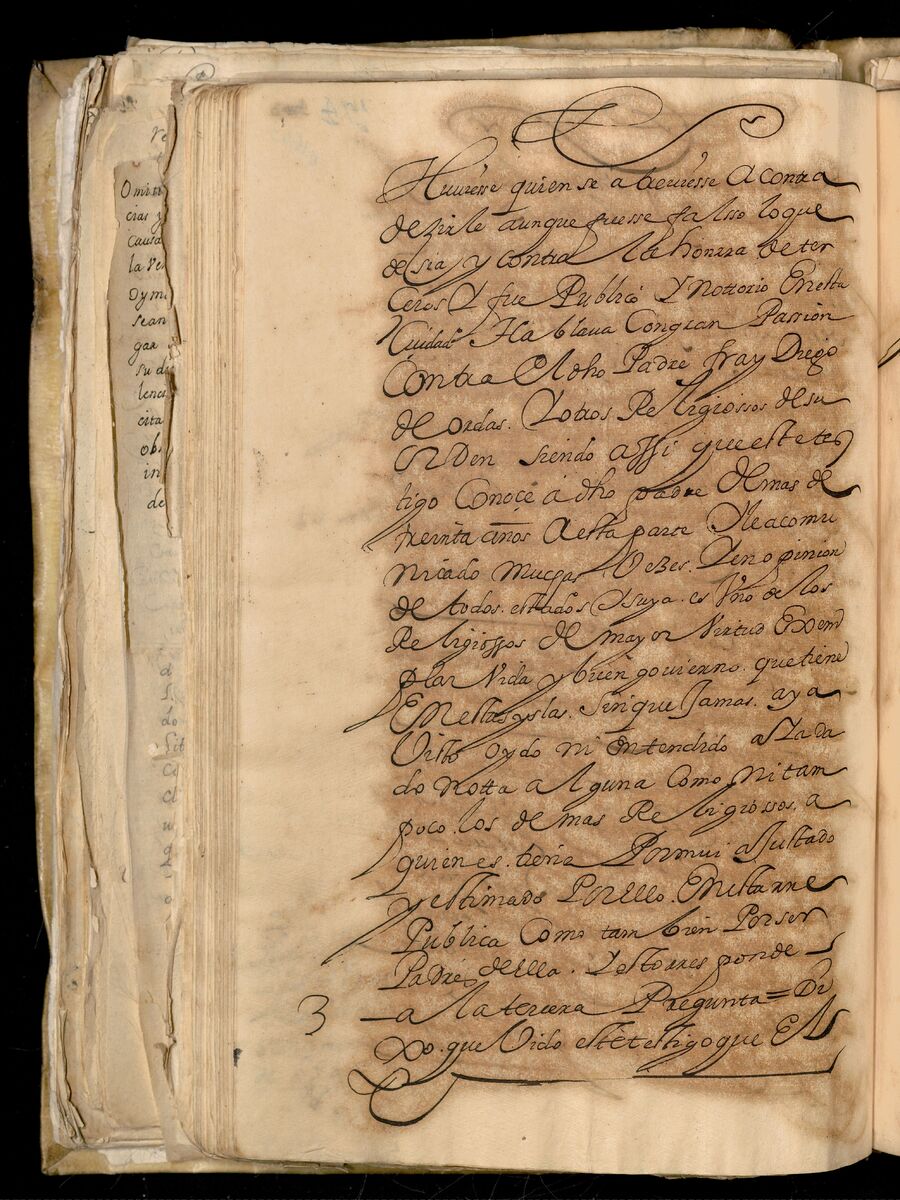 Omiti
cias y
causa
la Ve
Dymi
sean
gar
su d
lenci
cita
obs
in
de
Huuiesse quien se atreuiesse a contra
dezirle aunque fuesse falsso lo que
desia y contra la honrra de ter
ceros Y fue Publico Y Nottorio En esta
Ciudad Hablaua Con gran Passion
Contra El dho Padre fray Diego
de Ordas. Y otros Religiossos de su
ORden siendo assi que este tes
tigo Conoce â dho padre de mas de
treinta años a esta parte Y le a comu
nicado muchas Vezes. Y en opinion
de todos. estados Y suya. es Vno de los
Religiossos de mayor Virtud Exem
plar Vida y buen gouierno. que tiene
En estas yslas. sin que Jamas. aya
Visto oydo ni entendido aSLada
do notta alguna Como ni tam
poco. los demas Religiossos. a
quienes. tenia Por mui ajustado
y estimado Por ello. En esta rre
Publica Como tambien Por ser
Padre de ella. Y esto rresponde
3 a la tercera Pregunta = Di
Xo. que Vido este testigo que El